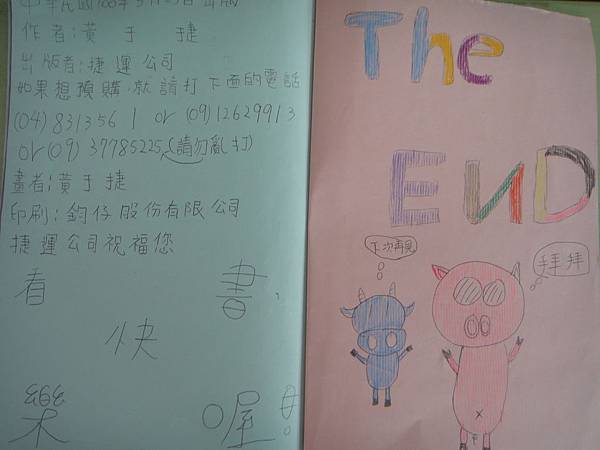 中華民國100年5月25日出版
作者:黃于捷
出版者:捷運公司
如果想預購,就請打下面的電話
(04)8313561 or (09)12629913
or(09)37785225,(請勿亂打)
畫者:黃于捷
印刷:鈞仔股份有限公司
捷運公司祝福您
看書,
快
樂喔!!
The
END
下次再見
拜拜